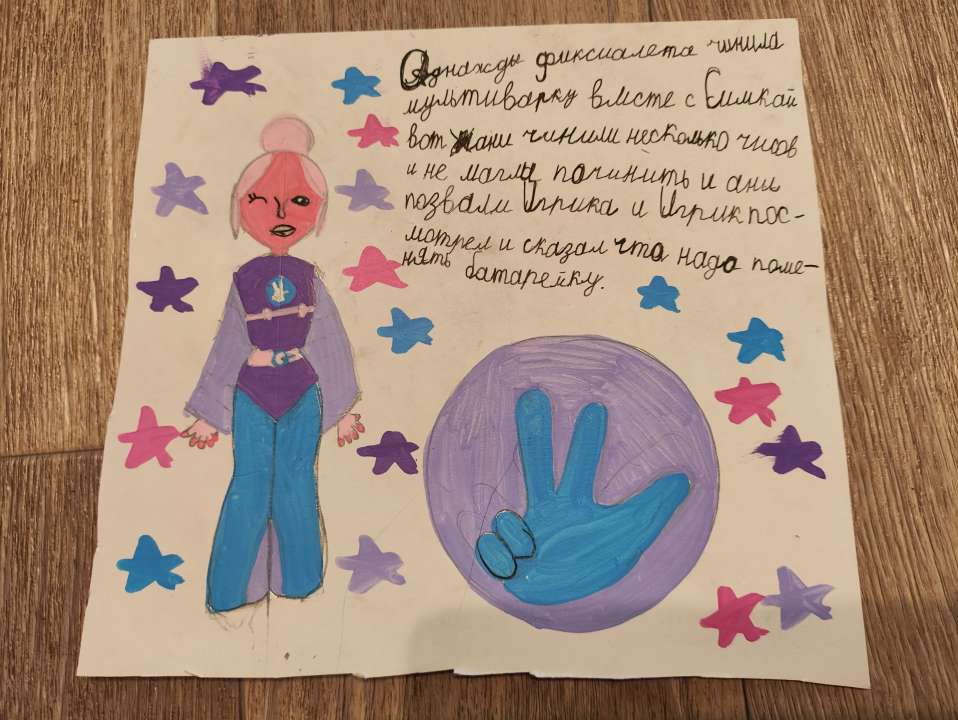 Однажды фиксиалета чинила
мультиварку вмсте с Симкай
вот ани чинили несколько чисов
и не магли починить и ани
позвали Игрика и Игрик пос-
мотрел и сказал что надо поме-
нять батарейку.